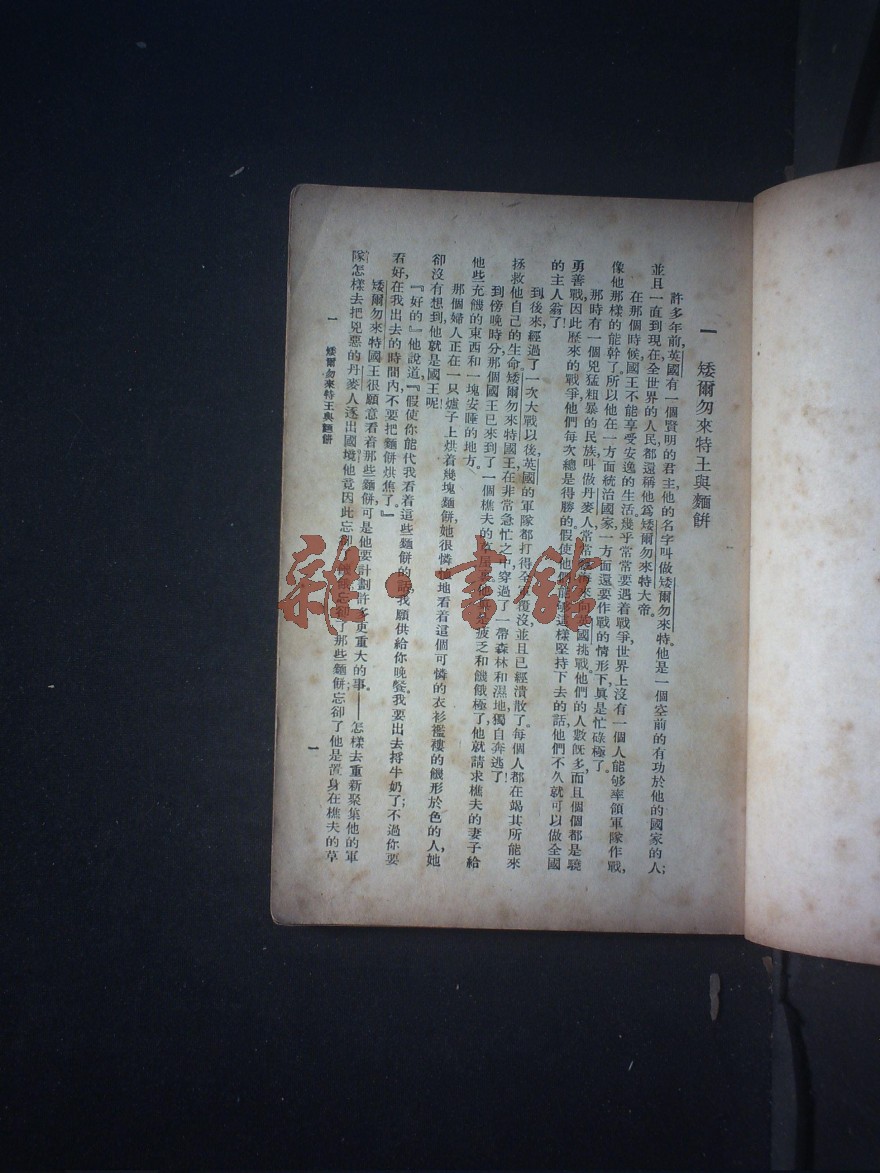 一 矮爾勿來特王與麵餅
許多年前，英國有一個賢明的君主，他的名字叫做矮爾勿來特。他是一個空前的有功於他的國家的人；
並且一直到現在全世界的人民都還稱他爲矮爾勿來特大帝。
在那個時候，國王不能享受安逸的生活，幾乎常常要遇着戰爭。世界上沒有一個人能够率領軍隊作戰，
像他那樣的能幹了。所以他在一方面統治國家，一方面還要作戰的情形下，眞是忙碌極了。
那時有一個兇猛粗暴的民族，叫做丹麥人，常常 英國挑戰。他們的人數旣多，而且個個都是驍
勇善戰，因此歷來的戰爭，他們每次總是得勝的。假使他們能够這樣堅持下去的話，他們不久就可以做全國
的主人翁了！
到後來，經過了一次大戰以後，英國的軍隊都打得全 覆沒，並且已經潰散了。每個人都在竭其所能來
拯救他自己的生命。矮爾勿來特國王在非常急忙之中，穿過了一帶森林和濕地，獨自奔逃了！
到傍晚時分，那個國王已來到了一個樵夫的 屋 疲乏和饑餓極了，他就請求樵夫的妻子給
他些充饑的東西和一塊安睡的地方。
那個婦人正在一只爐子上烘着幾塊麵餅，她很憐 地看着這個可憐的衣衫襤褸的饑形於色的人，她
卻沒有想到他就是國王呢！
『好的，』他說道，『假使你能代我看着這些麵餅的話，我願供給你晚餐。我要出去捋牛奶了；不過你要
看好，在我出去的時間內，不要把麵餅烘焦了。』
矮爾勿來特國王很願意看着那些麵餅，可是他要計劃許多更重大的事。——怎樣去重新聚集他的軍
隊，怎樣去把兇惡的丹麥人逐出國境。他竟因此忘卻 了那些麵餅；忘卻了他是置身在樵夫的草
一 矮爾勿來特王與麵餅
一
雜·書館